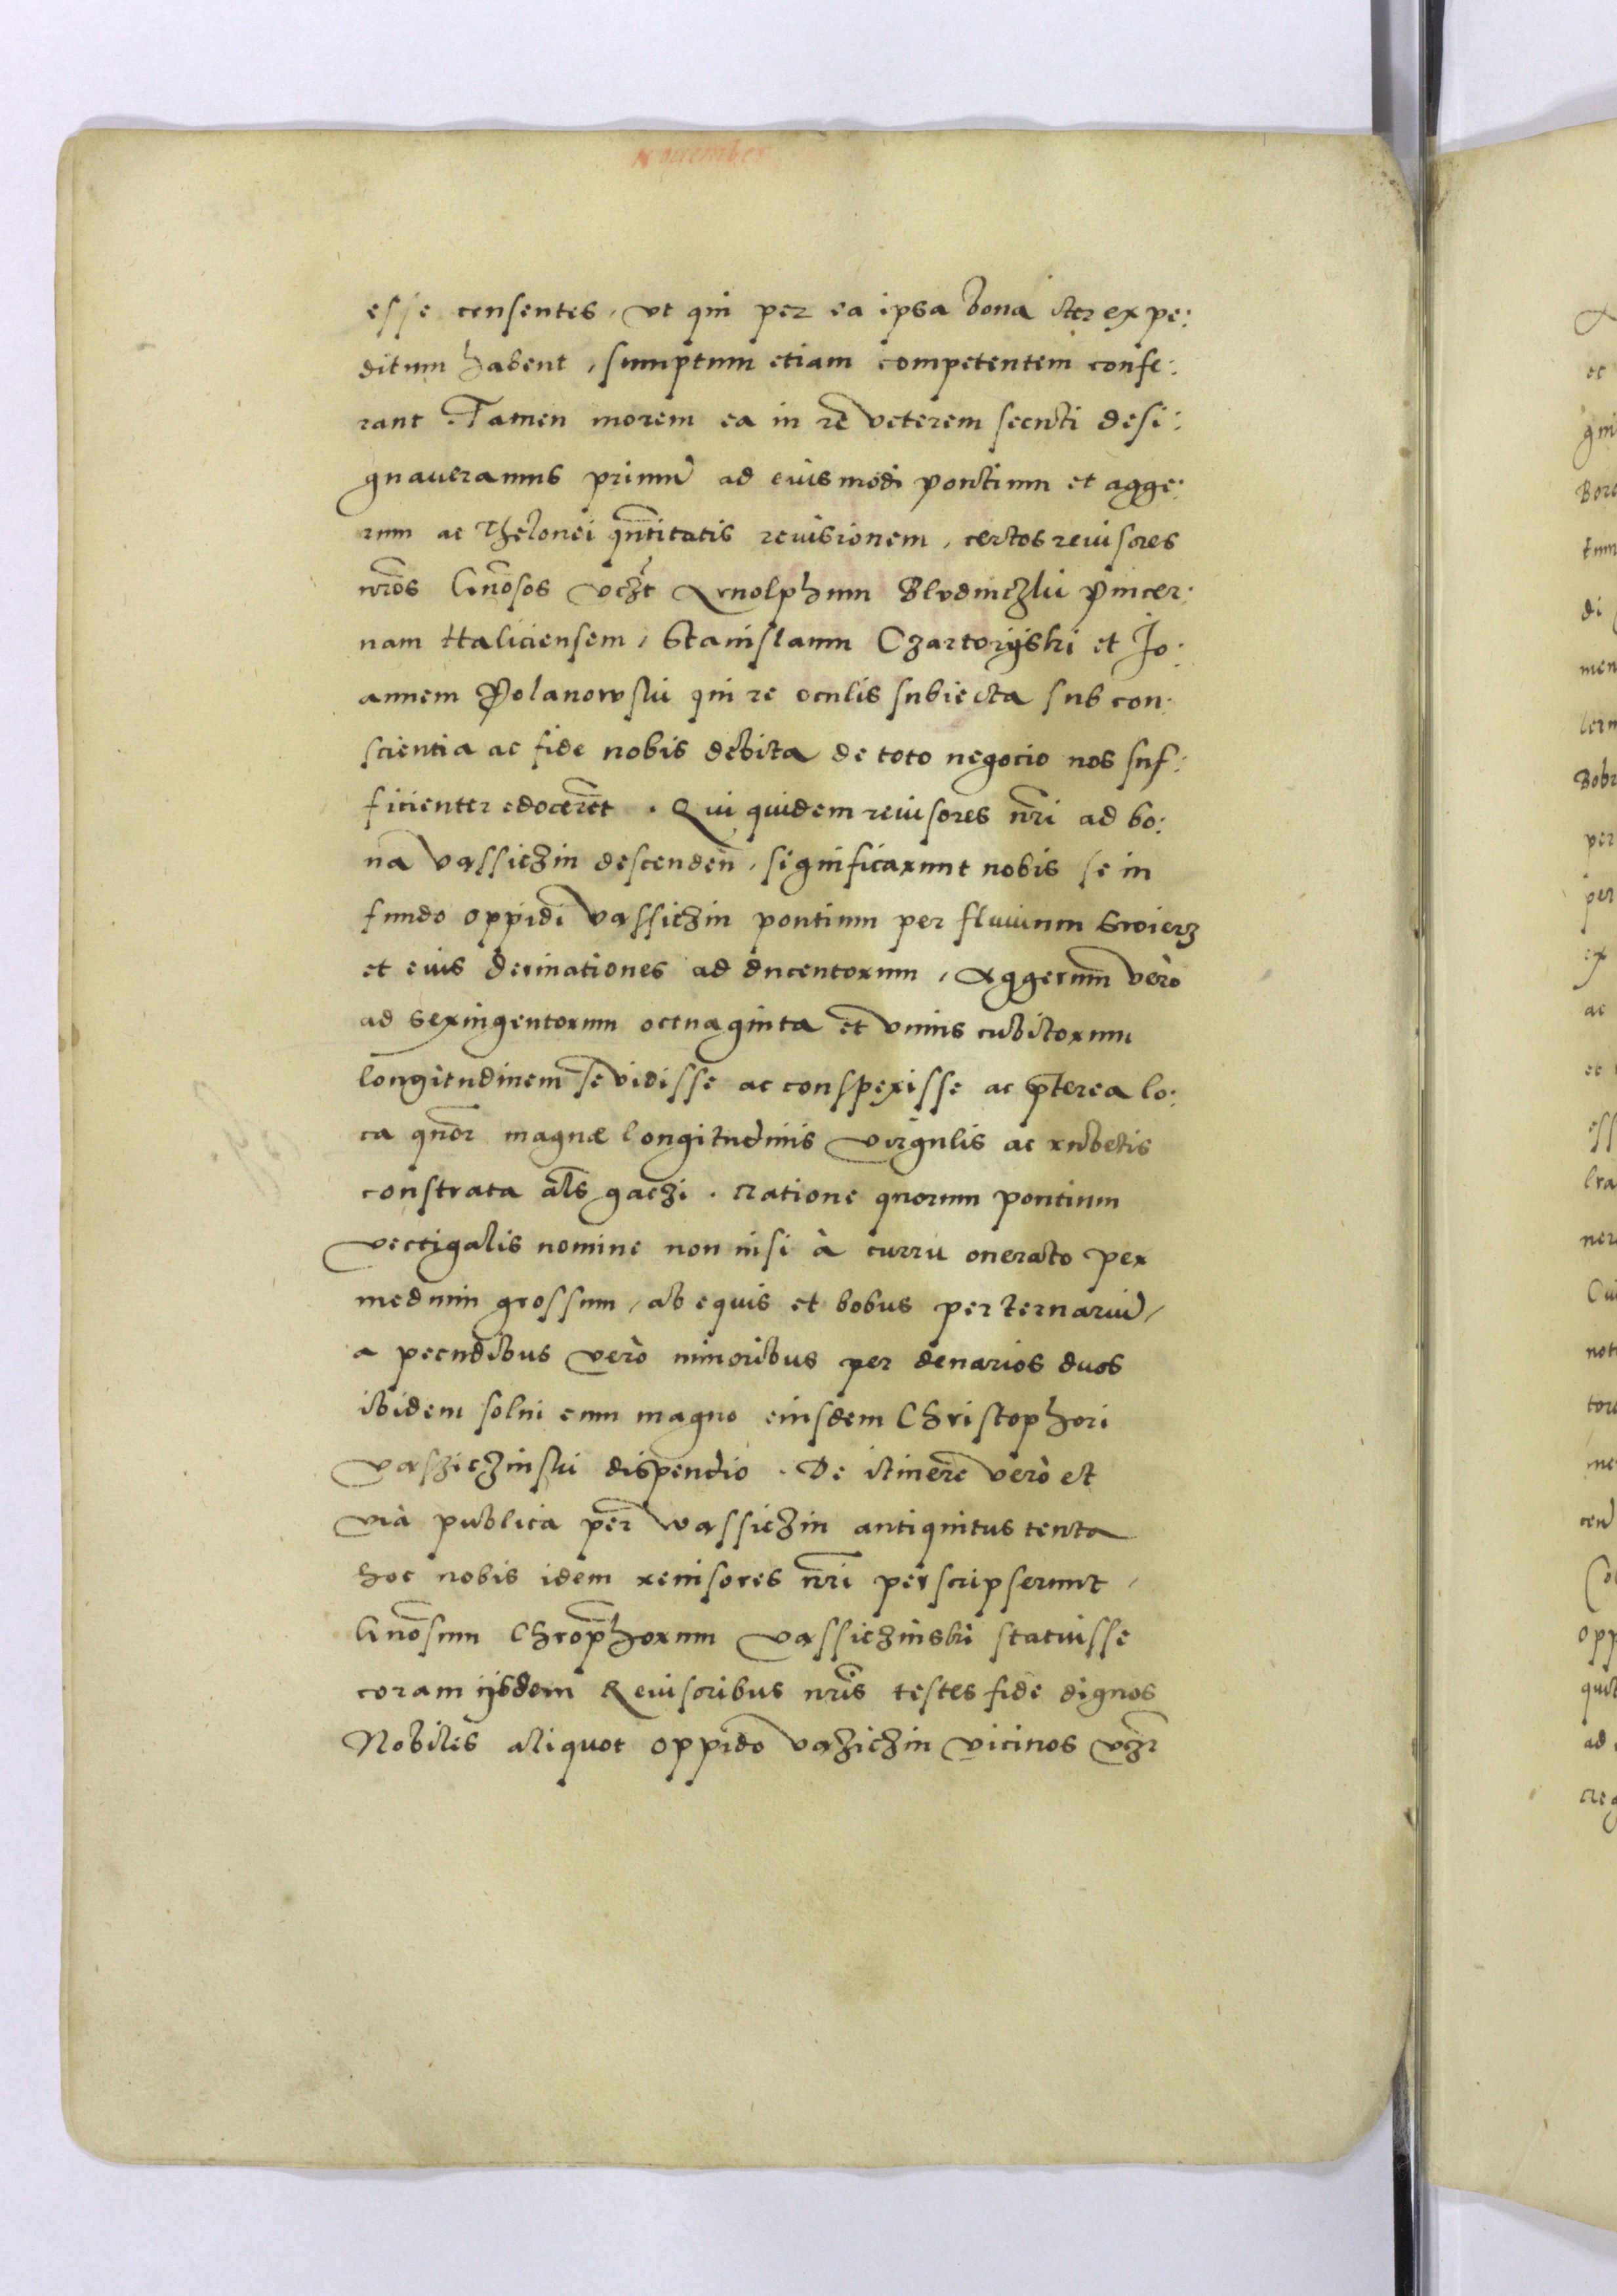 November
esse censentes, vt qui per ea ipsa bona iter expe:
ditum habent, sumptum etiam competentem confe:
rant. Tamen morem ea in re veterem secuti desi:
gnaueramus primũ ad eiusmodi pontium et agge:
rum ac Thelonei qũntitatis reuisionem, certos reuisores
nr̃os Gñosos vczt Arnolphum Bludniczki Pincer:
nam Haliciensem, Stanislaum Czartoryski et Jo:
annem Polanowski qui re oculis subiecta sub con:
scientia ac fide nobis debita de toto negocio nos suf:
ficienter edocerẽt. Qui quidem reuisores nr̃i ad bo:
na Vassiczin descendeñ, significarunt nobis se in
fundo oppidi Vassiczin pontium per fluuium Swierz
et eius deriuationes ad ducentorum, Aggerum vero
ad sexingentorum octuaginta et vnius cubitorum
longitudinem se vidisse ac conspexisse ac p̃terea lo:
ca quor̃ magnæ longitudinis virgulis ac rubetis
constrata al̃s gaczi. Ratione quorum pontium
vectigalis nomine non nisi à curru onerato per
medium grossum, ab equis et bobus per ternariũ,
a pecudibus verò minoribus per denarios duos
ibidem solui cum magno eiusdem Christophori
Vasziczinski dispendio. De itinere verò et
via publica per Wassiczin antiquitus tenta
hoc nobis idem reuisores nr̃i perscripserunt,
Gñosum Chrõphorum Vassiczinski statuisse
coram ijsdem Reuisoribus nr̃is testes fide dignos
Nobiles aliquot oppido Vaziczin vicinos vcz̃t